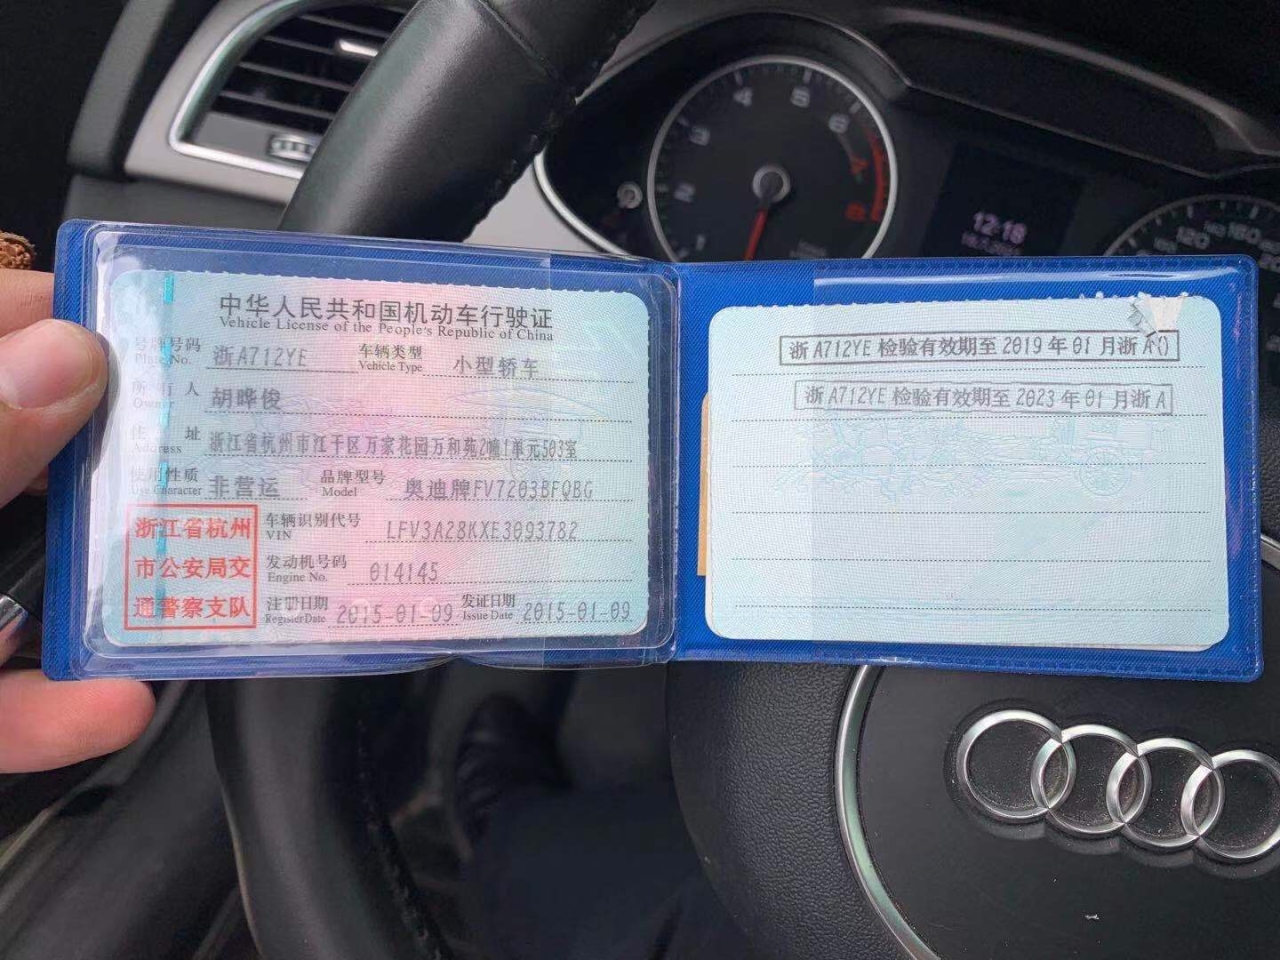 中华人民共和国机动车行驶证
Vehicle License of the People's Republic of China
号牌号码 浙A712YE 车辆类型 小型轿车
Plate No. Vehicle Type
所有人 胡晔俊
Owner
住址 浙江省杭州市江干区万家花园万和苑2幢1单元503室
Address
使用性质 非营运 品牌型号 奥迪牌FV7203BFQBG
Use Character Model
浙江省杭州
市公安局交
通警察支队
车辆识别代号 LFV3A28KXE3093782
VIN
发动机号码 014145
Engine No.
注册日期 2015-01-09 发证日期 2015-01-09
Register Date Issue Date
浙A712YE检验有效期至2019年01月浙A
浙A712YE检验有效期至2023年01月浙A
1
2
3
4
5
6
7
8
12:18
120
160